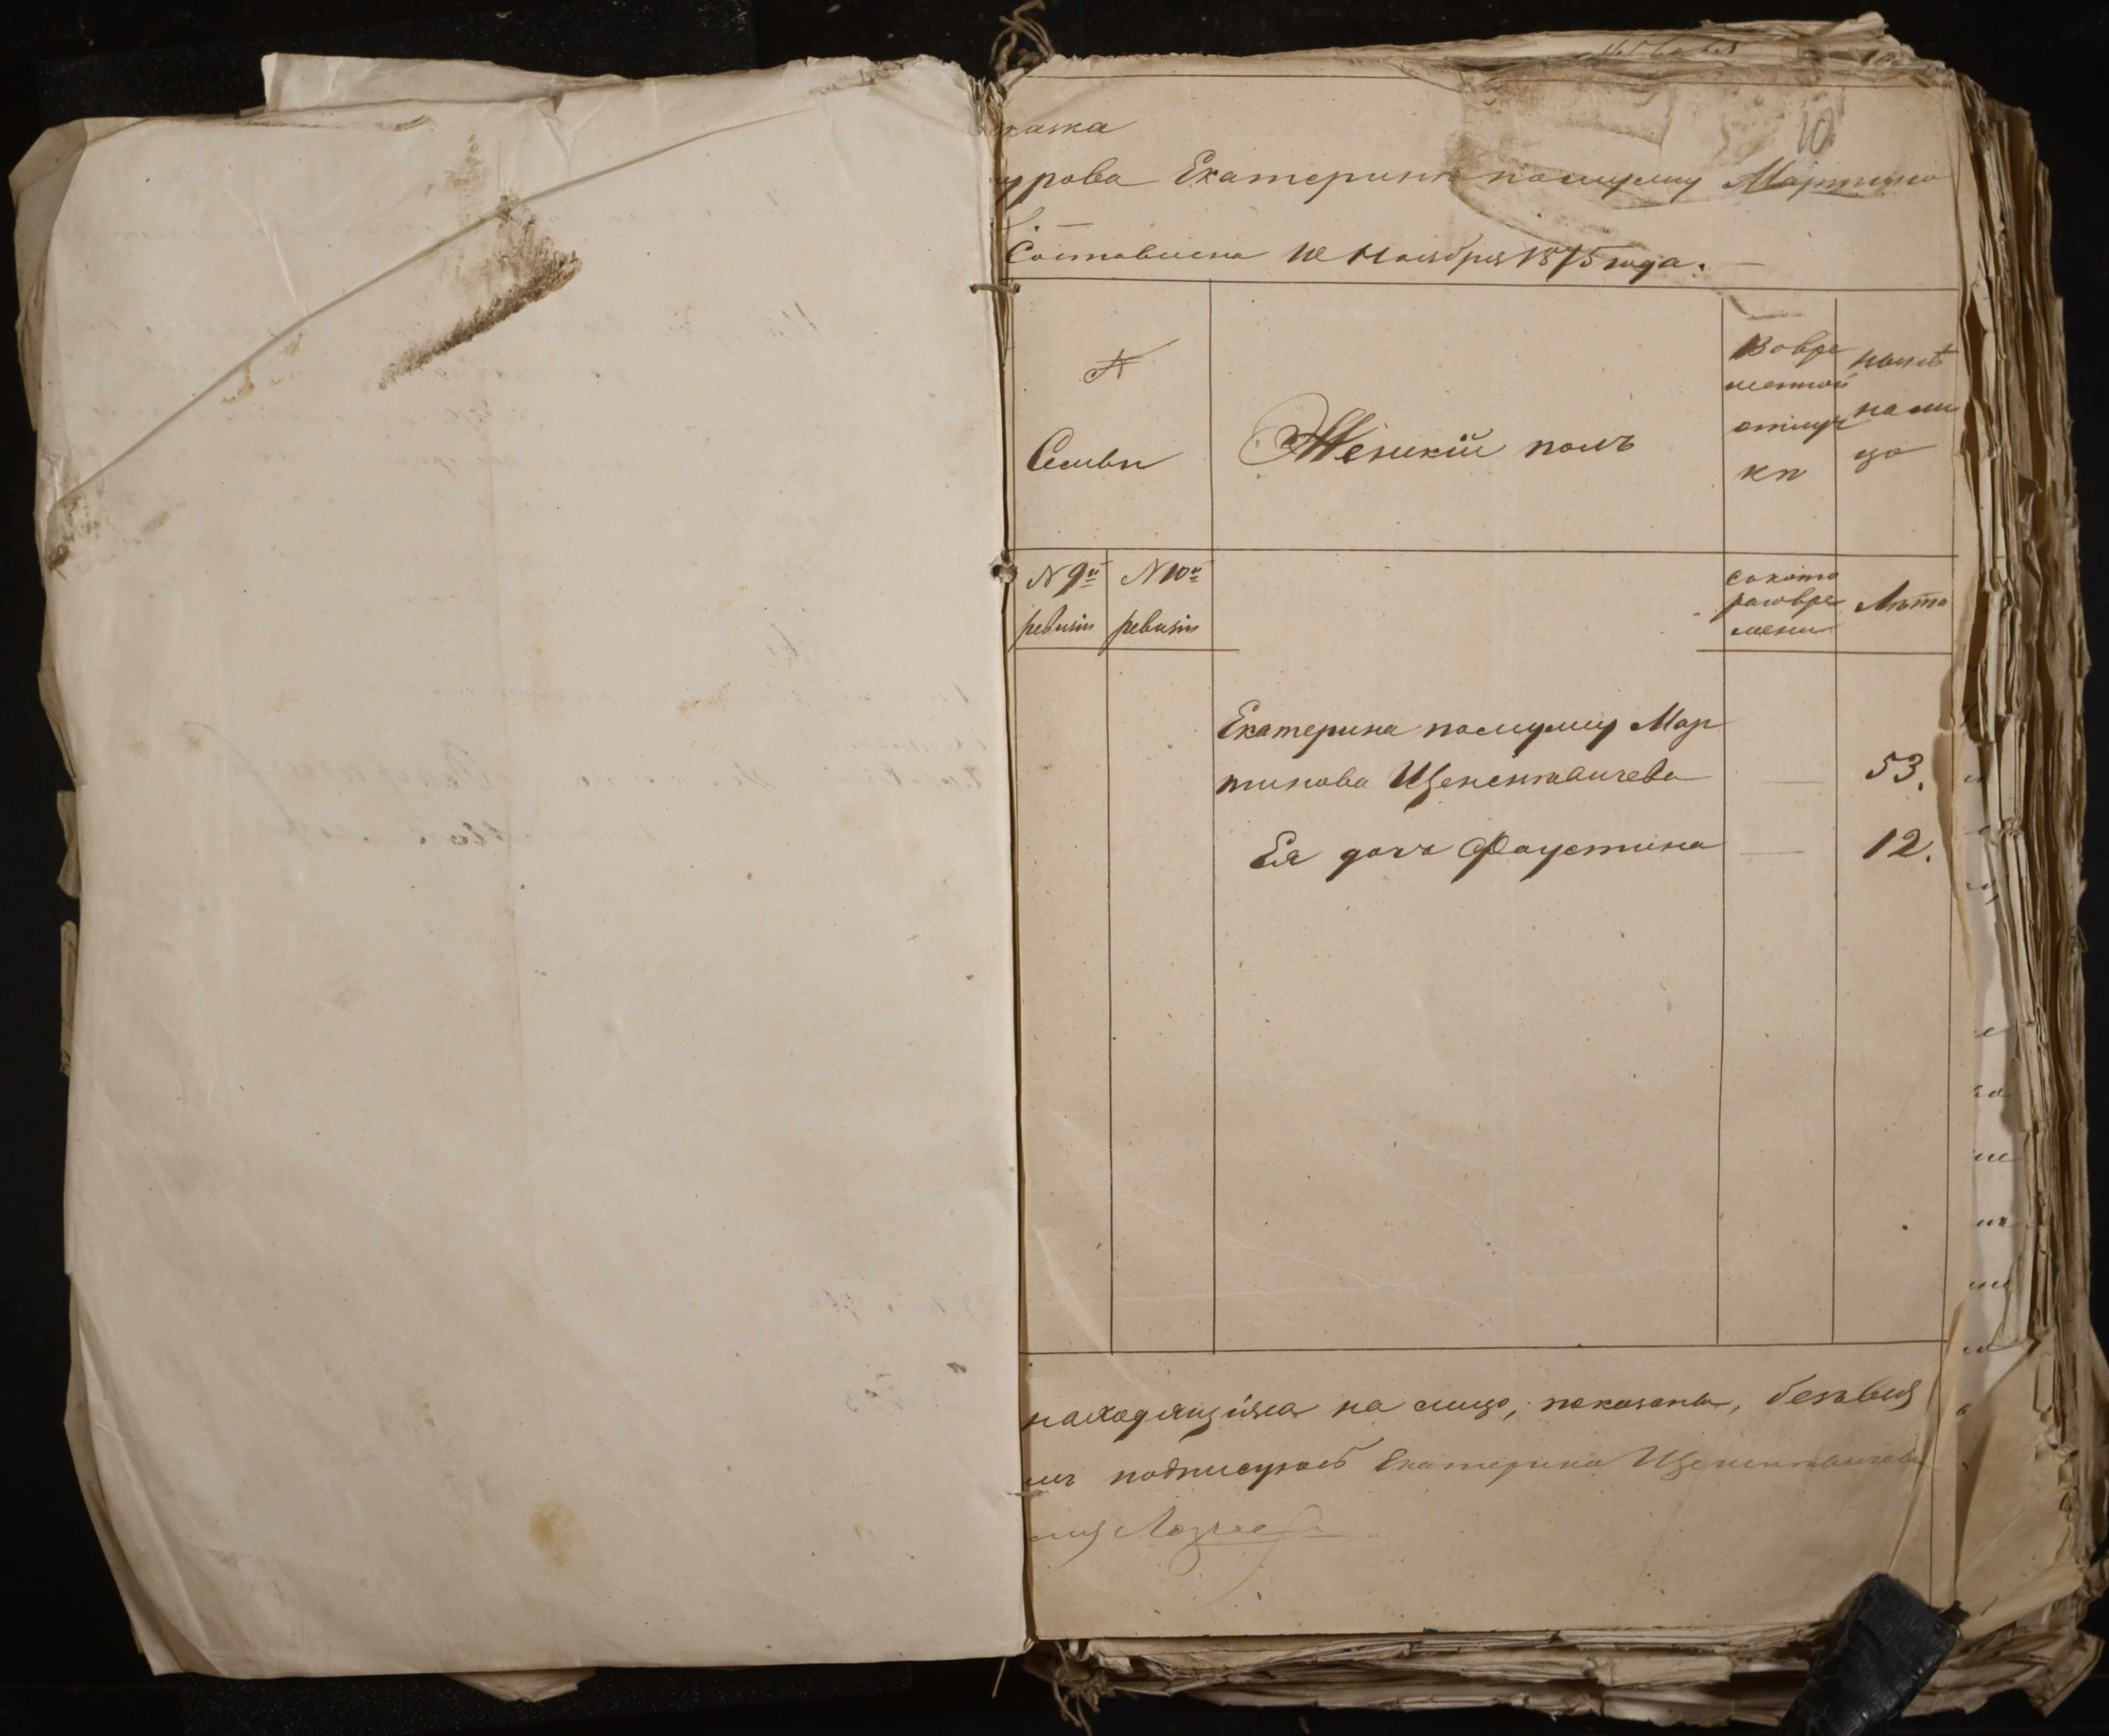 10
казка
урова Екатерины помужу Мартино
Составлена 10 Ноября 1875 года.
№
Семьи
Женскій полъ
Вовре
менной
отлуч
кѣ
нынѣ
на ли
цо
N 9й
ревизіи
N 10й
ревизіи
Сокото
раговре
мени
Лѣта
Екатерина помужу Мар
тинова Щенснтовичева — 53.
Ея дочь Фаустина — 12.
находящіяся на лицо, показаны, безъвся
мъ подписуюсь Екатерина